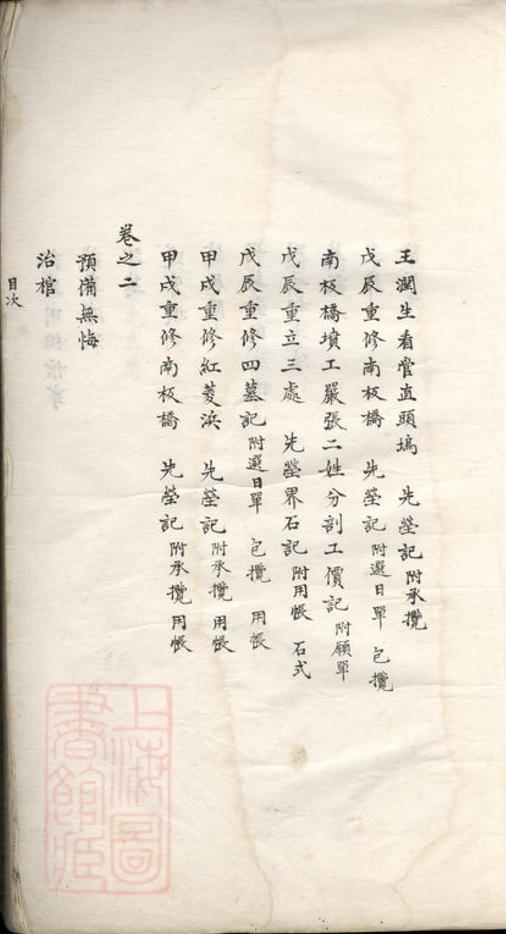 王潤生看管直頭塢 先塋記附承攬
戊辰重修南板橋 先塋記附選日單 包攬
南板橋墳工嚴張二姓分剖工價記附願單
戊辰重立三處 先塋界石記附用帳 石式
戊辰重修四墓記附選日單 包攬 用帳
甲戌重修紅菱浜 先塋記附承攬 用帳
甲戌重修南板橋 先塋記附承攬 用帳
卷之二
預備無悔
治棺
目次
上海圖
書館藏